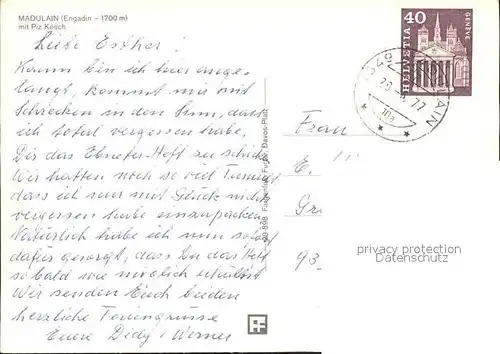 MADULAIN (Engadin – 1700 m)
mit Piz Kesch
Liebe Esther!
Kaum bin ich hier ange-
langt, kommt mir mit
Schrecken in den Sinn, dass
ich total vergessen habe,
Dir das Ebneter-Heft zu schicken
Wir hatten noch so viel
dass ich nur mit Glück nichts
vergessen habe einzupacken
Natürlich habe ich nun sofort
dafür gesorgt, dass Du das Heft
sobald wie möglich erhältst
Wir senden Euch beiden
herzliche Feriengrüsse
Euere Didy & Werner
Davos-Platz
Frau
E.
Gr
93
HELVETIA
40
GENÈVE
77
privacy protection
Datenschutz